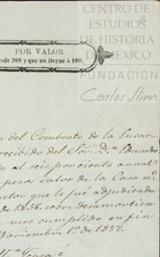 CENTRO DE
ESTUDIOS
DE HISTORIA
DE MÉXICO
FUNDACIÓN
Carlos Slim
POR VALOR
desde 20$ y que no llegue á 100.
del Convento de la Encar
recibido del Sor. Dn. Eduardo
al seis por ciento anual
valor de la Casa n.
que le fué adjudicada
de 1856. sobre desamortiza
mes cumplido en fin
Noviembre 1º de 1857.